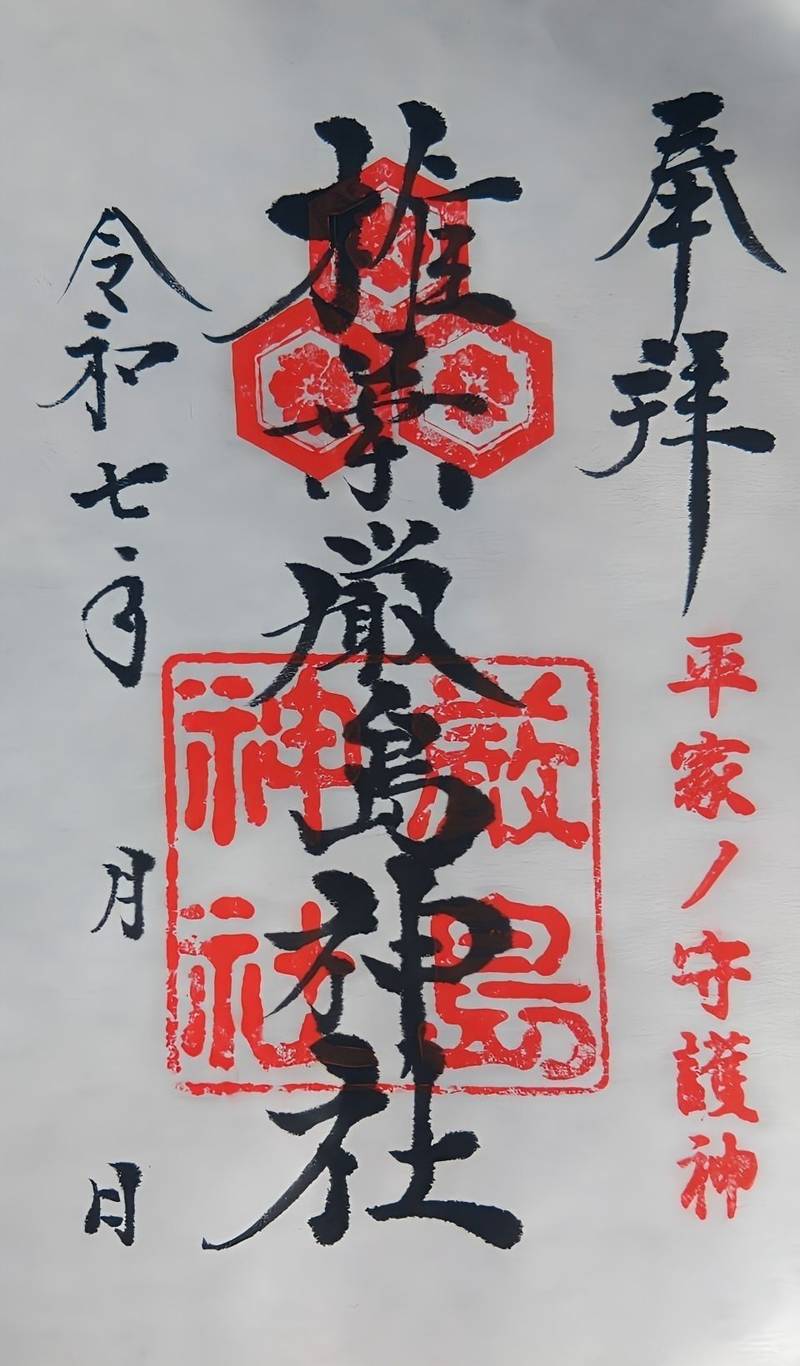 奉拝
平家ノ守護神
椎葉厳島神社
厳島
神社
令和七年
月
日